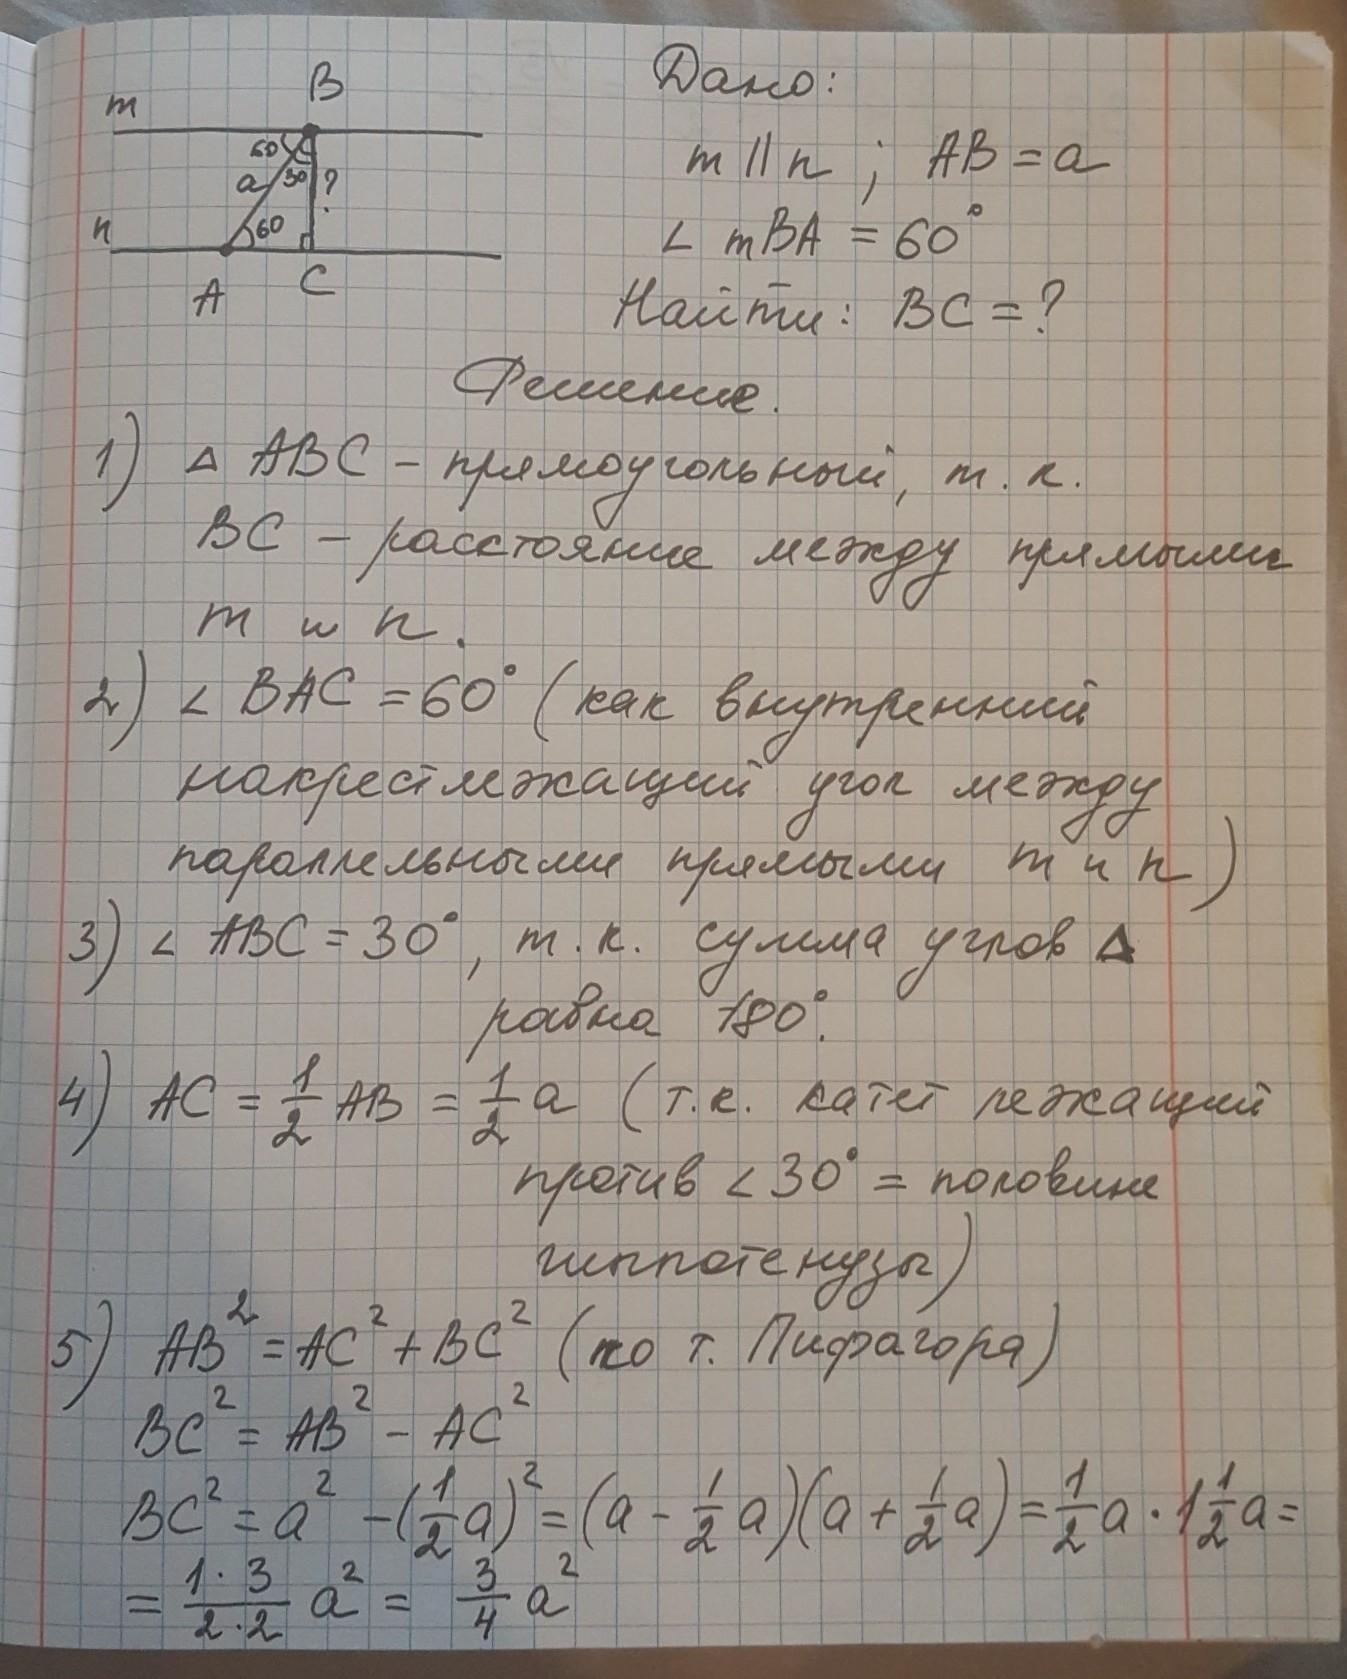 m
B
60
a 30 ?
n
60
A
C
Дано:
m || n ; AB = a
∠ mBA = 60°
Найти: BC = ?
Решение.
1) △ ABC – прямоугольный, т. к.
BC – расстояние между прямыми
m и n.
2) ∠ BAC = 60° (как внутренний
накрестлежащий угол между
параллельными прямыми m и n)
3) ∠ ABC = 30°, т. к. сумма углов △
равна 180°.
4) AC = 1/2 AB = 1/2 a (т.к. катет лежащий
против ∠ 30° = половине
гиппотенузы)
5) AB² = AC² + BC² (по т. Пифагора)
BC² = AB² – AC²
BC² = a² – (1/2 a)² = (a – 1/2 a)(a + 1/2 a) = 1/2 a · 1 1/2 a =
= 1·3/2·2 a² = 3/4 a²